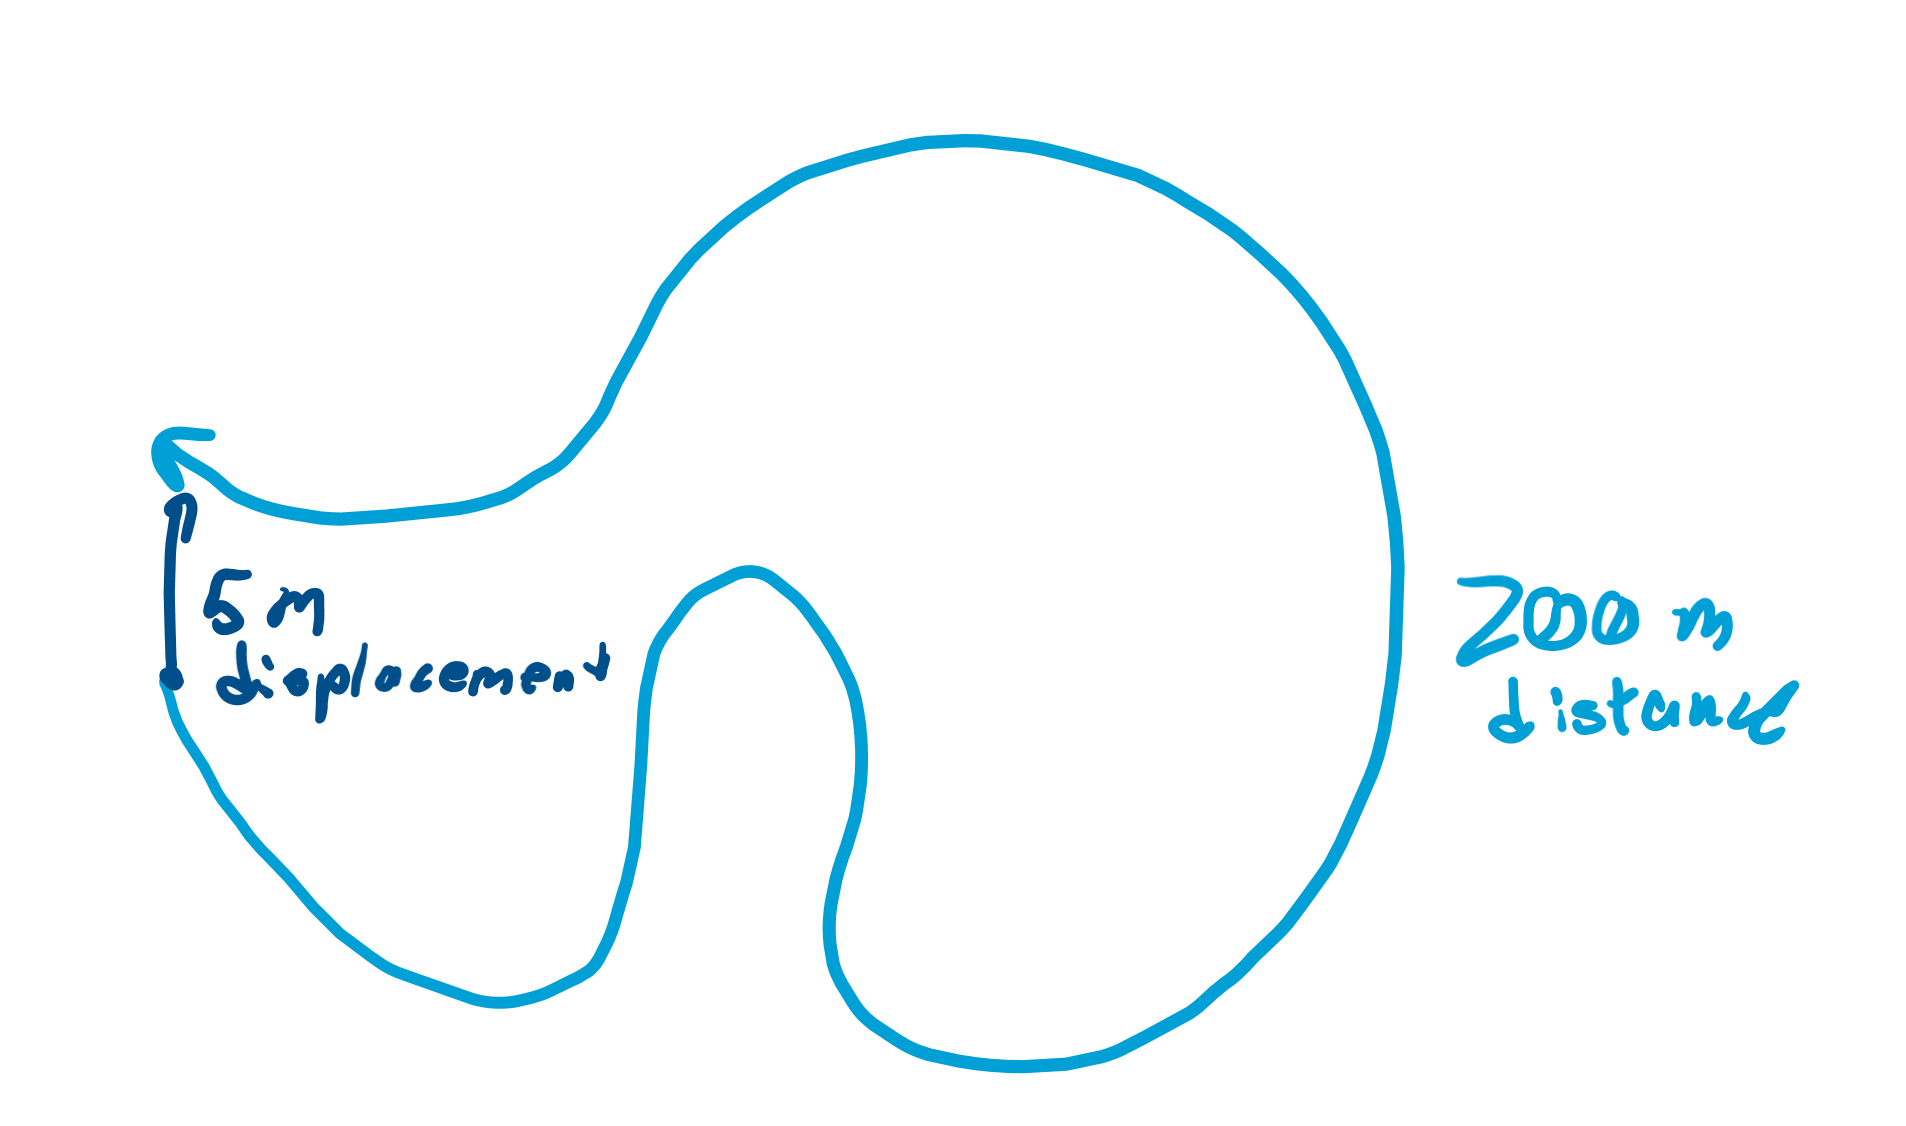 5 m
displacement
2000 m
distance